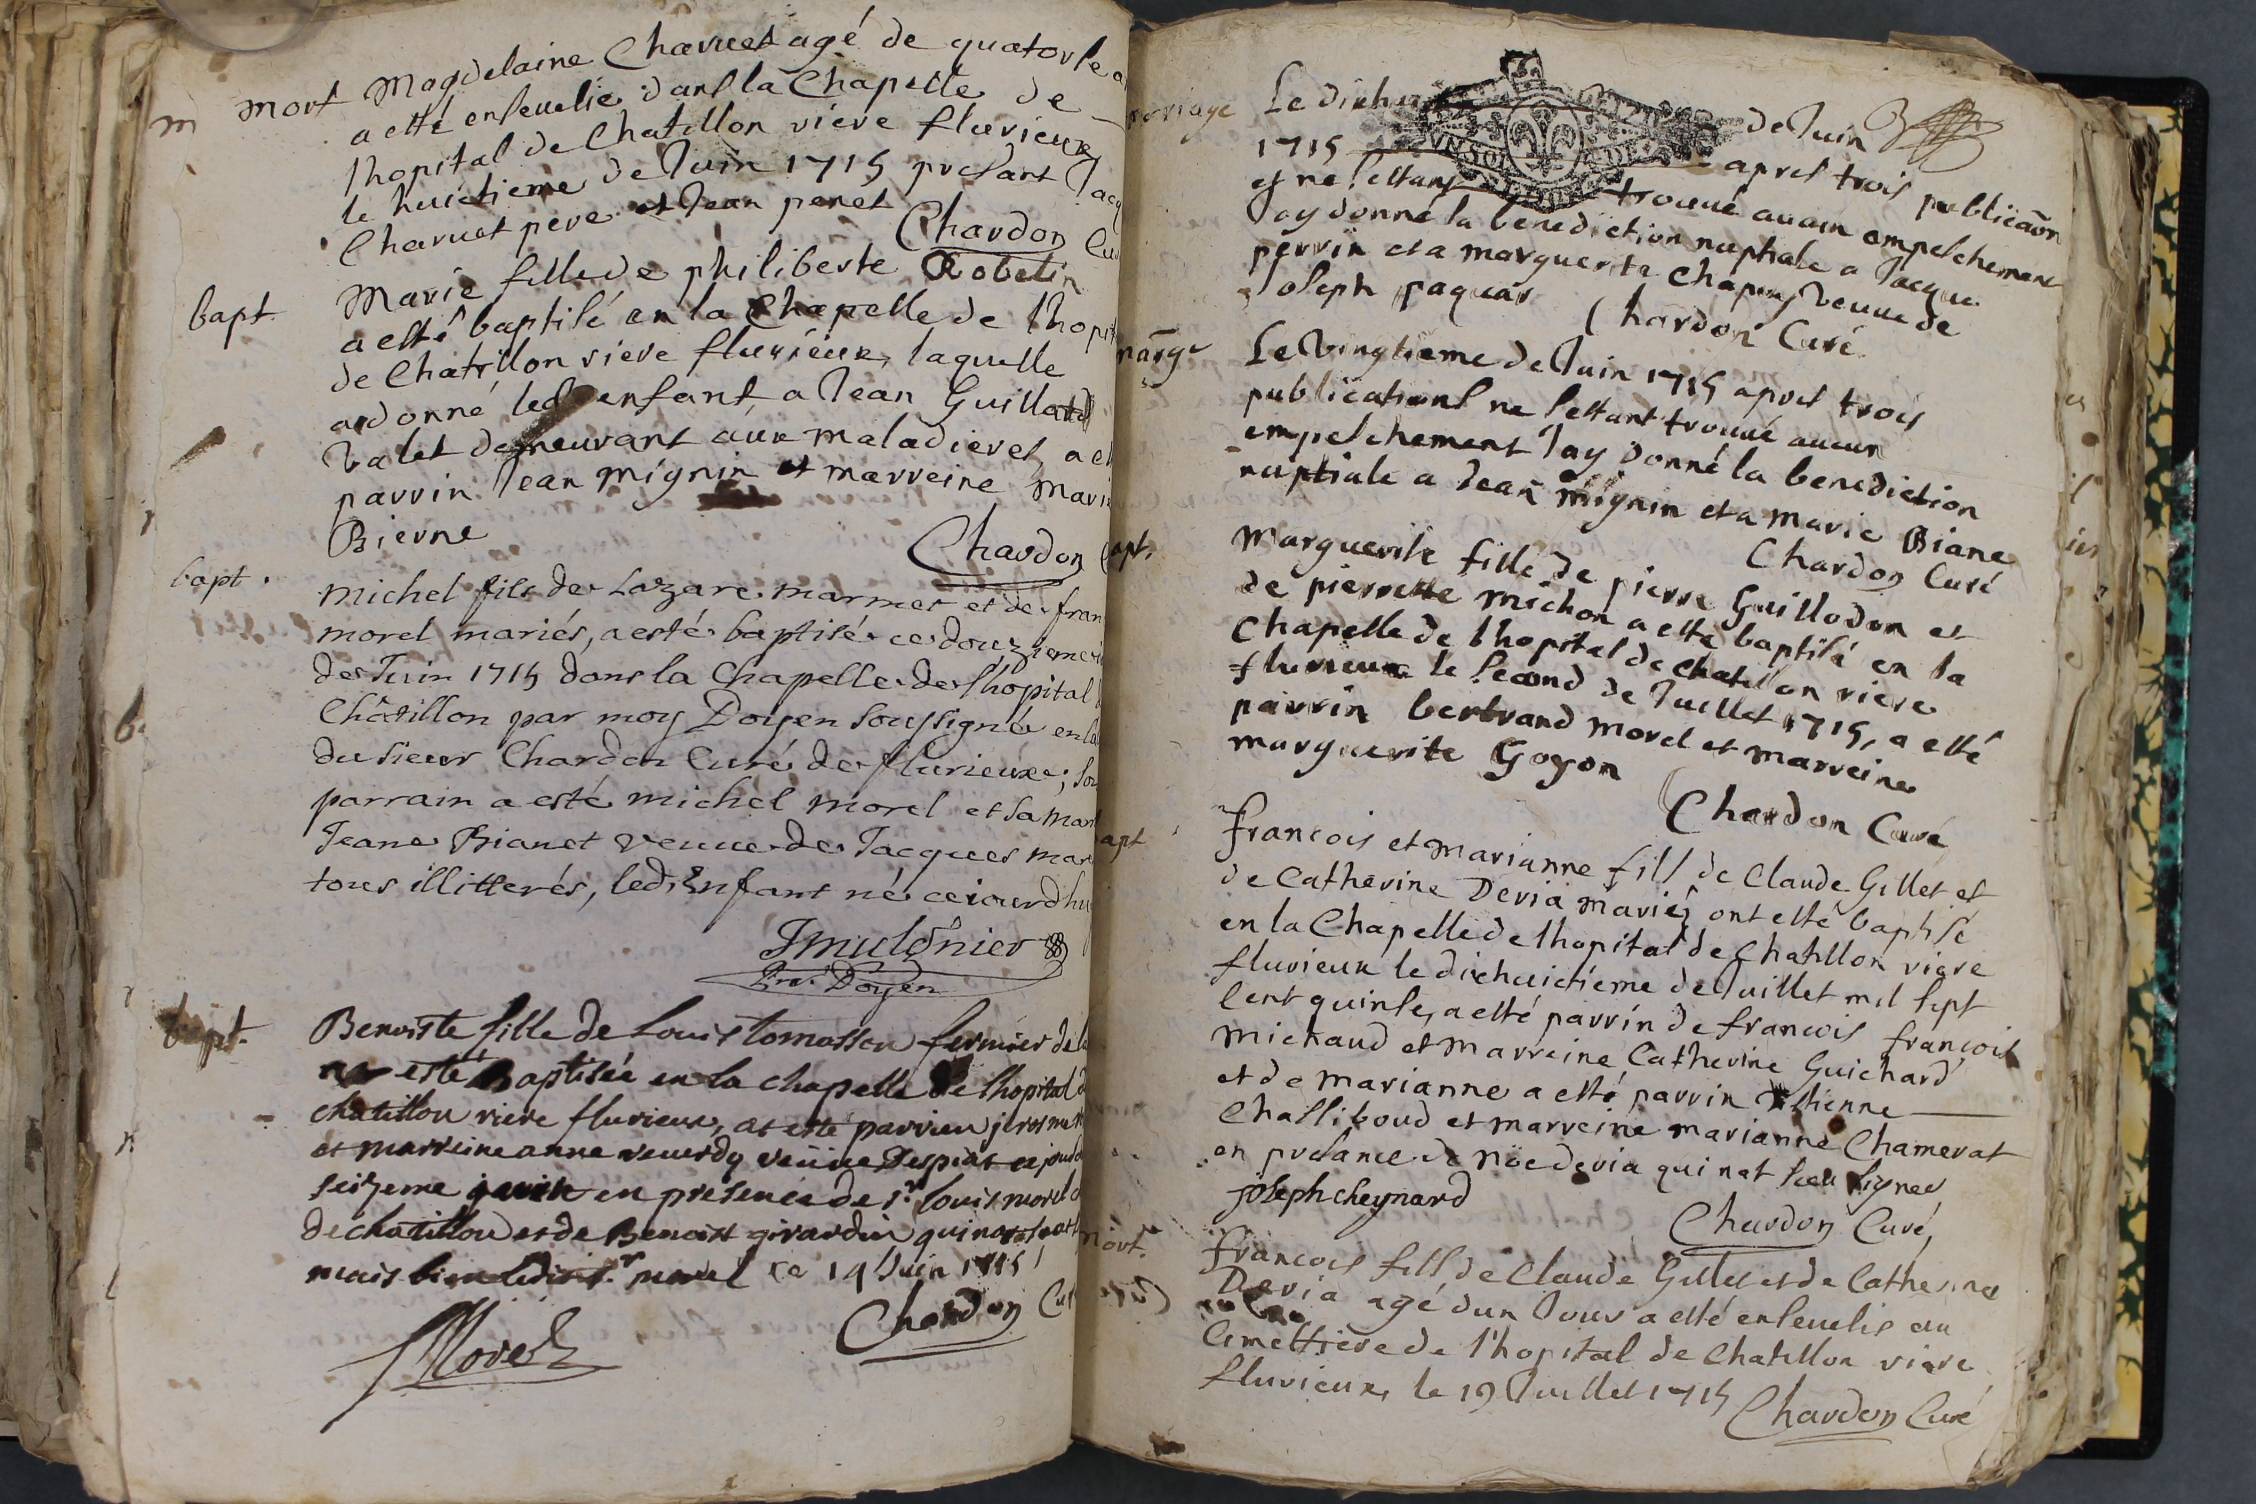 mort Magdelaine Charvet agé de quatorse
a esté enseuelie dans la Chapelle de
lhopital de Chatillon riére fluvieux
le huictieme de Juin 1715 presant Jacq
Charvet pere et Jean penet
Chardon Cu
bapt. Marie fille de philiberte Robelin
a esté baptisé en la Chapelle de lhopit
de Chatillon riere flurieux, laquelle
a donné led enfant a Jean Guillard
valet demeurant aux maladieres, a e
parrin Jean mignin et marreine mari
Bierne
Chardon
bapt. michel fils de Lazare marmet et de fran
morel mariés, a esté baptisé ce douzieme
de Juin 1715 dans la Chapelle de lhopital
Châtillon par moy Doyen soussigné en la
du sieur Chardon Curé de flurieux; so
parrain a esté michel morel et sa mar
Jeane Bianet veuue de Jacques mar
tous illitterés, led. Enfant né ceiourdhuy
Doyen
bapt. Benoiste fille de Louis tomasson fermier de l
esté Baptisée en la chapelle de lhopital d
chatillon riere flurieux, at esté parrien
et marreine anne veuue ce jourd
seizeme en presence de sr. louis morel
de chatillon et de Benoist girardin qui
mais ce 14 Juin 1715
Chardon Cu
Morel
mariage Le dixhu de Juin
1715 apres trois publicaon
et ne sestant trouué aucun empeschement
Jay donné la benediction nuptiale a Jacque
perrin et a marguerite Chapuy veuue de
Joseph paquar
Chardon Curé
marge Le vingtieme de Juin 1715 apres trois
publications ne sestant trouué aucun
empeschement Jay donné la benediction
nuptiale a Jean mignin et a marie Biane
Chardon Curé
bapt. Marguerite fille de pierre Guillodon et
de pierrette michon a esté baptisé en la
Chapelle de lhopital de chatillon riere
flurieux le second de Juillet 1715, a esté
parrin bertrand morel et marreine
marguerite Goyon
Chardon Curé
bapt francois et marianne fills de Claude Gillet et
de Catherine Deria mariés ont esté baptisé
en la Chapelle de lhopital de Chatillon riere
flurieux le dixhuictieme de Juillet mil sept
Cent quinse, a esté parrin de francois francois
michaud et marreine Catherine Guichard
et de marianne a esté parrin Estienne
Challiboud et marreine marianne Chamerat
en presance de Noe deria qui nat sceu signer
joseph cheynard
Chardon Curé,
mort. francois fills de Claude Gillet et de Catherine
Deria agé dun Jour a esté enseuelis au
Cimettiere de l'hopital de Chatillon riere
flurieux, le 19 Juillet 1715
Chardon Curé